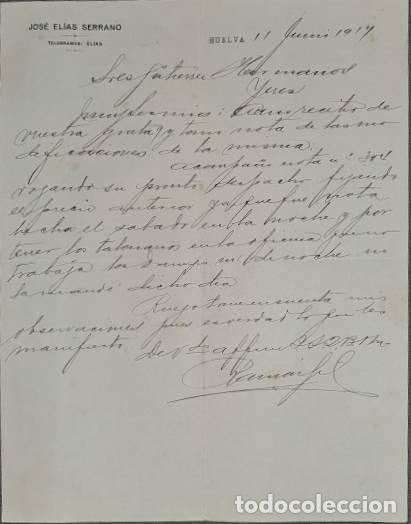 JOSÉ ELÍAS SERRANO
TELEGRAMAS: ELIAS
HUELVA 11 Junio 1917
Sres Gutierrez Hermanos
Jerez
Muy Sres mios: acuso recibo de
vuestra grata 9 y tomo nota de las mo
dificaciones de la misma.
Acompaño nota nº 304
rogando su pronto despacho fijando
el precio anterior ya que fue nota
hecha el sabado en la noche y por
tener los talonarios en la oficina que no
trabaja los domingos ni de noche no
la mandé dicho dia
Ruego tomen en cuenta mis
observaciones pues es verdad lo que les
manifiesto.
De Vds affmo S S
todocoleccion.net